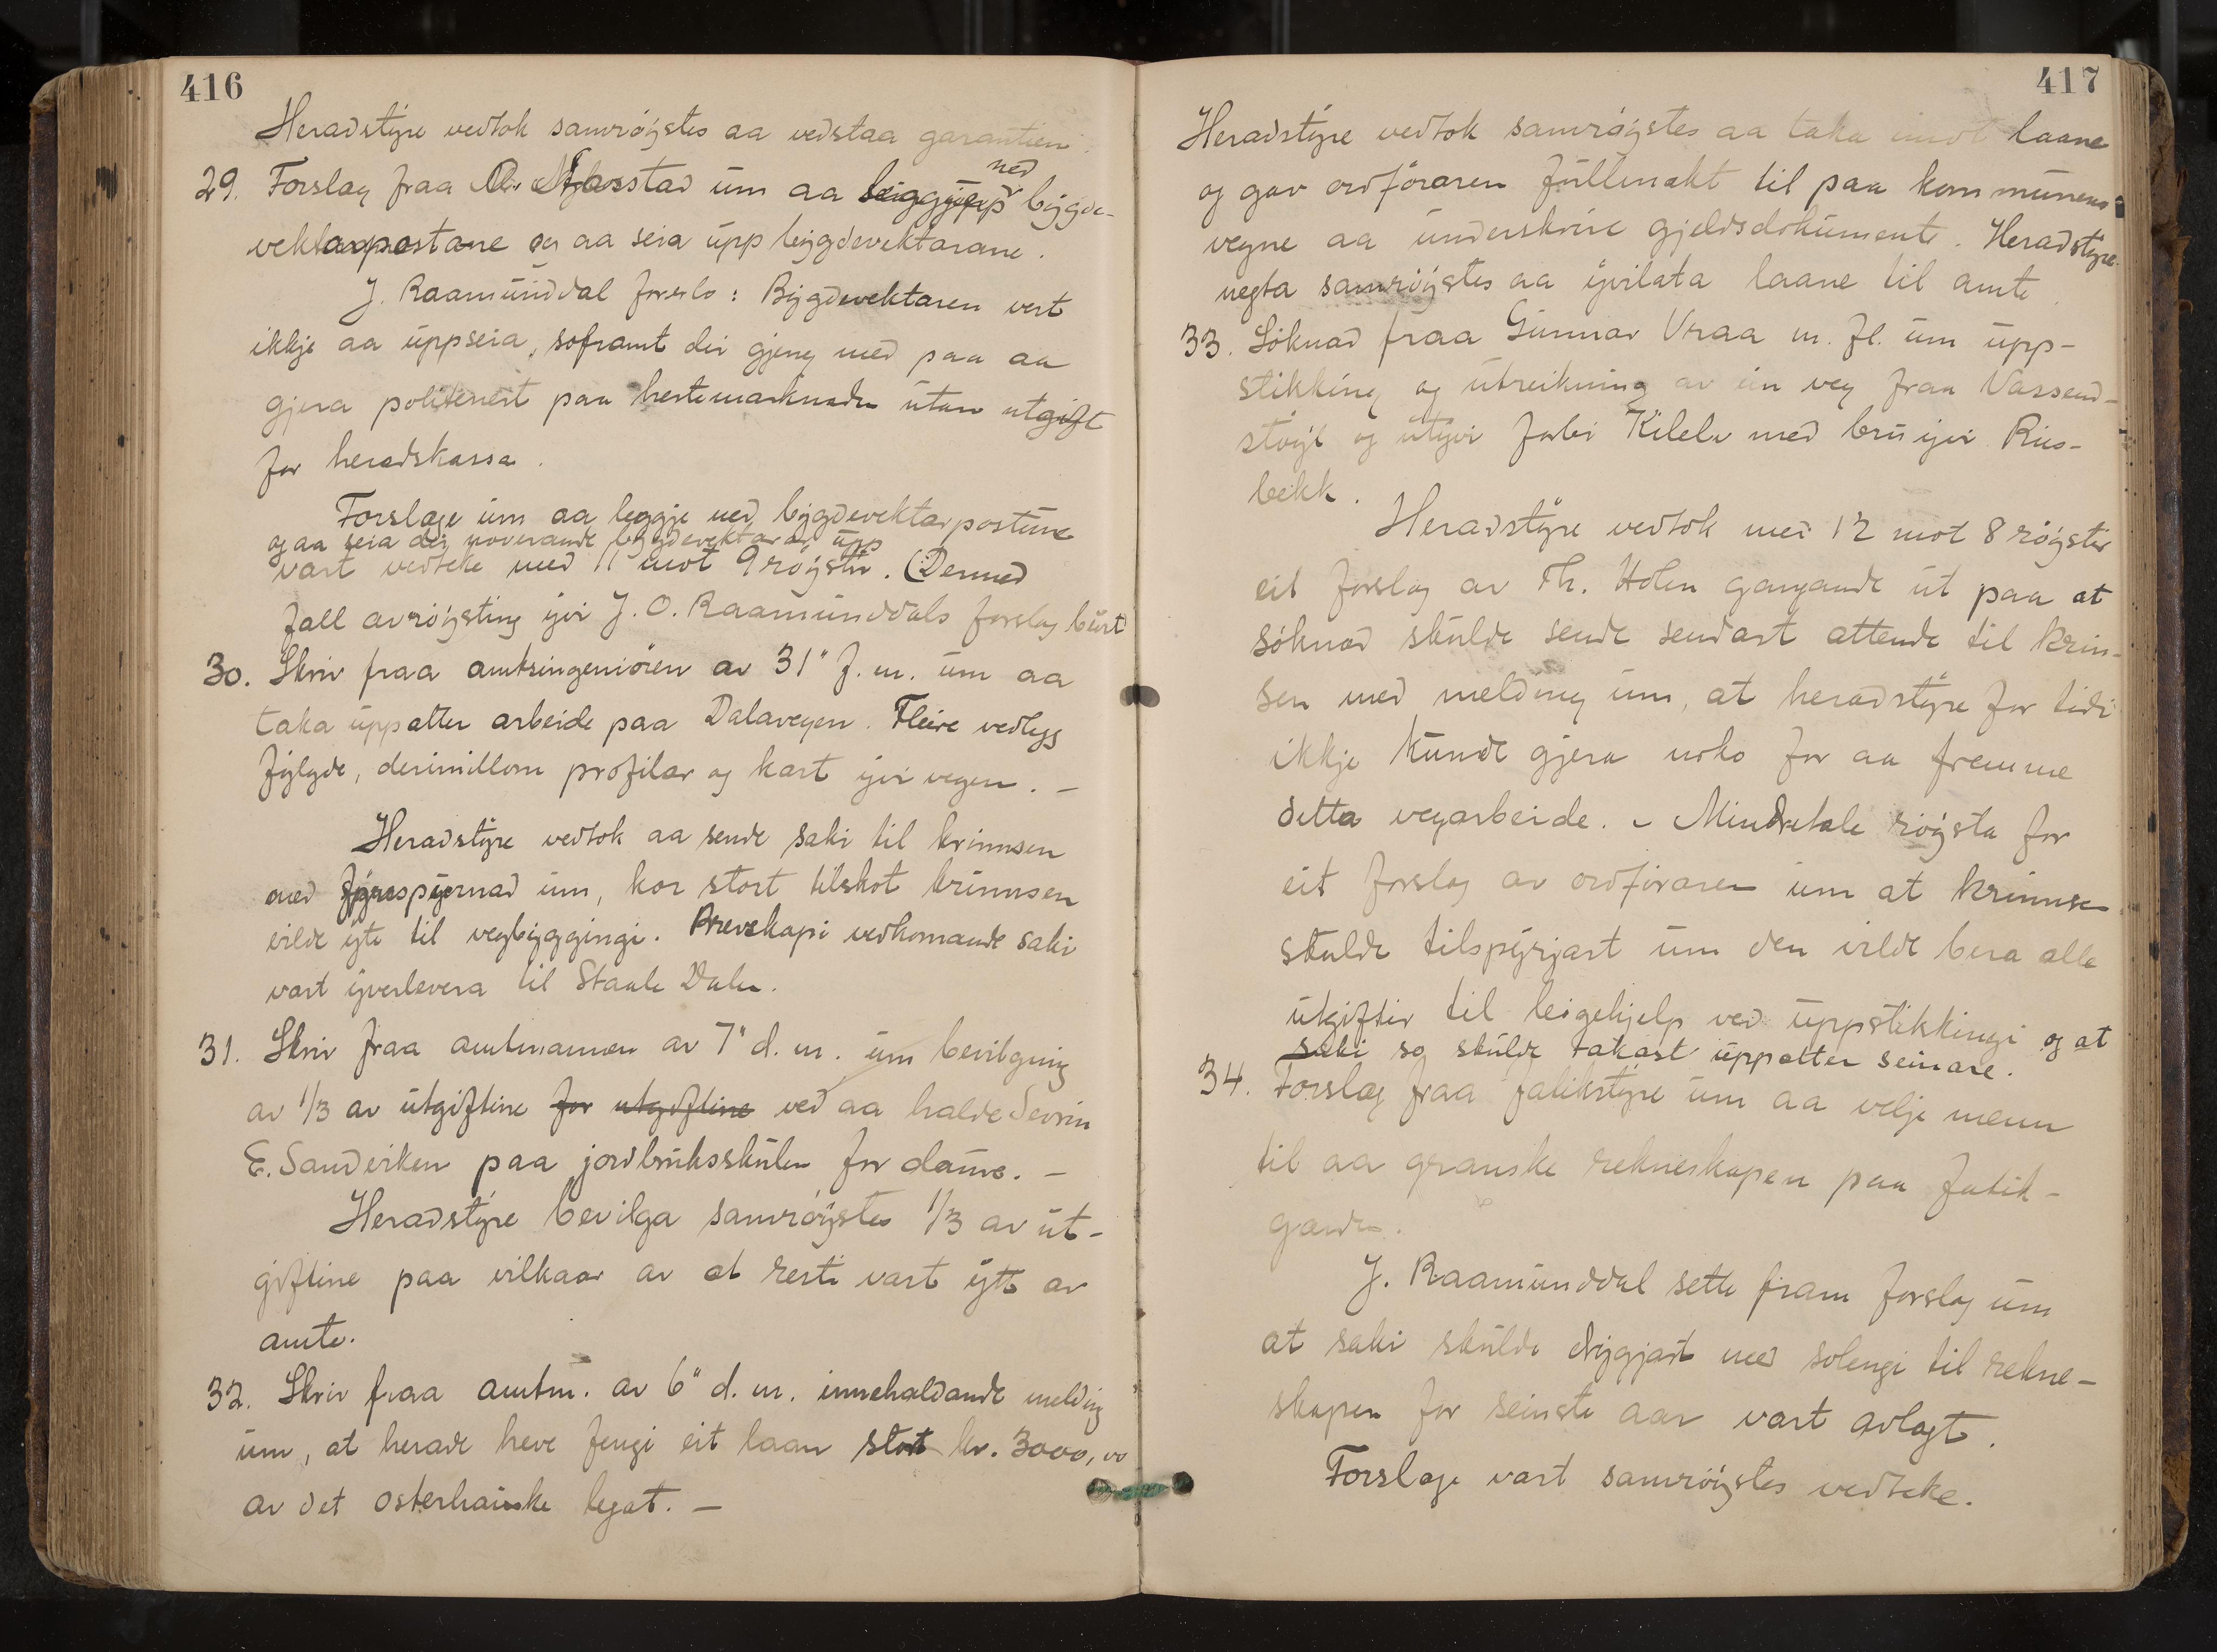 416
Heradstyre vedtok samrøystes aa vedstaa garantien.
29. Forslag fraa O. Mjosstad um aa leiggje ned bygde-
vektarpostane og aa seia upp bygdevektarane.
J. Raamunddal forslo: Bygdevektaren vert
ikkje aa uppseia, soframt dei gjeng med paa aa
gjera politenest paa hestemarknaden utan utgift
for heradskassa.
Forslage um aa leggje ned bygdevektarpostane
og aa seia dei noverande bygdevektarar upp
vart vedteke med 11 mot 9 røyster. (Dermed
fall avrøysting yvi J. O. Raamunddals forslag burt
30. Skriv fraa amtsingeniøren av 31" f. m. um aa
taka uppatter arbeide paa Dalavegen. Fleire vedlegg
fylgde, derimillom profilar og kart yvi vegen. –
Heradstyre vedtok aa sende saki til krinnsen
med fyrespurnad um, kor stort tilskot krinnsen
vilde yte til vegbyggingi. Brevskapi vedkomande saki
vart yverlevera til Staale Dalen.
31. Skriv fraa amtmannen av 7" d. m. um bevilgning
av 1/3 av utgiftine for utgiftine ved aa halde Sevrin
E. Sandviken paa jordbruksskulen for daūve. –
Heradstyre bevilga samrøystes 1/3 av ut-
giftine paa vilkaar av at resti vart ytt av
amte.
32. Skriv fraa amtm. av 6" d. m. innehaldande melding
um, at herade heve fengi eit laan stort kr. 3000,00
av det osterhauske legat. –
417
Heradstyre vedtok samrøystes aa taka imot laane
og gav ordføraren fullmakt til paa kommunens
vegne aa underskrive gjeldsdokumente. Heradstyre
negta samrøystes aa yvilata laane til amte.
33. Søknad fraa Gunnar Vraa m. fl. um upp-
stikking og utreikning av ein veg fraa Vassend-
støyl og utyvi forbi Kilele med bru yvi Rus-
bekk.
Heradstyre vedtok med 12 mot 8 røyster
eit forslag av Th. Holen gangande ut paa at
søknad skulde sende sendast attende til krin-
sen med melding um, at heradstyre for tidi
ikkje kunde gjera noko for aa fremme
detta vegarbeide. – Mindretale røysta for
eit forslag av ordføraren um at krinnsen
skulde tilspyrjast um den vilde bera alle
utgifter til leigehjelp ved uppstikkingi og at
saki so skulde takast uppatter seinare.
34. Forslag fraa fatikstyre um aa velje menn
til aa granske rekneskapen paa fatik-
garden.
J. Raamunddal sette fram forslag um
at saki skulde drygjast med solengi til rekne-
skapen for seinste aar vart avlagt.
Forslage vart samrøystes vedteke.